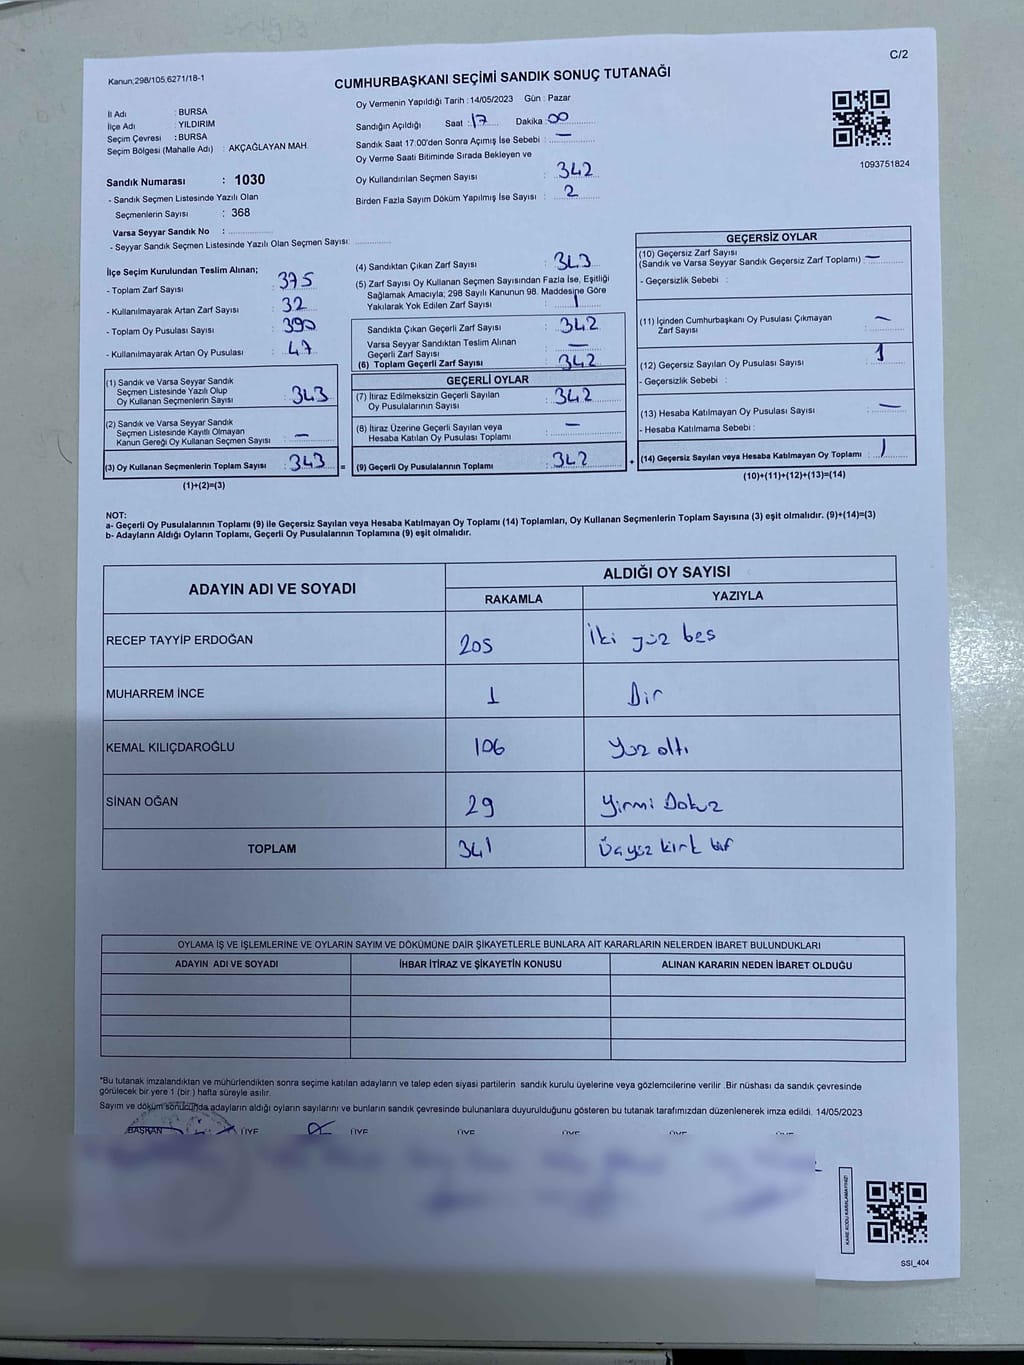 C/2
Kanun;298/105,6271/18-1
CUMHURBAŞKANI SEÇİMİ SANDIK SONUÇ TUTANAĞI
İl Adı : BURSA
İlçe Adı : YILDIRIM
Seçim Çevresi : BURSA
Seçim Bölgesi (Mahalle Adı) : AKÇAĞLAYAN MAH.
Sandık Numarası : 1030
- Sandık Seçmen Listesinde Yazılı Olan
Seçmenlerin Sayısı : 368
Varsa Seyyar Sandık No :
- Seyyar Sandık Seçmen Listesinde Yazılı Olan Seçmen Sayısı:
Oy Vermenin Yapıldığı Tarih : 14/05/2023 Gün : Pazar
Sandığın Açıldığı Saat : 17 Dakika : 00
Sandık Saat 17:00'den Sonra Açımış İse Sebebi : —
Oy Verme Saati Bitiminde Sırada Bekleyen ve
Oy Kullandırılan Seçmen Sayısı : 342
Birden Fazla Sayım Döküm Yapılmış İse Sayısı : 2
1093751824
İlçe Seçim Kurulundan Teslim Alınan;
- Toplam Zarf Sayısı : 375
- Kullanılmayarak Artan Zarf Sayısı : 32
- Toplam Oy Pusulası Sayısı : 390
- Kullanılmayarak Artan Oy Pusulası : 47
(1) Sandık ve Varsa Seyyar Sandık
Seçmen Listesinde Yazılı Olup
Oy Kullanan Seçmenlerin Sayısı : 343
(2) Sandık ve Varsa Seyyar Sandık
Seçmen Listesinde Kayıtlı Olmayan
Kanun Gereği Oy Kullanan Seçmen Sayısı : —
(3) Oy Kullanan Seçmenlerin Toplam Sayısı : 343 =
(1)+(2)=(3)
(4) Sandıktan Çıkan Zarf Sayısı : 343
(5) Zarf Sayısı Oy Kullanan Seçmen Sayısından Fazla İse, Eşitliği
Sağlamak Amacıyla; 298 Sayılı Kanunun 98. Maddesine Göre
Yakılarak Yok Edilen Zarf Sayısı : 1
Sandıkta Çıkan Geçerli Zarf Sayısı : 342
Varsa Seyyar Sandıktan Teslim Alınan
Geçerli Zarf Sayısı : —
(6) Toplam Geçerli Zarf Sayısı : 342
GEÇERLİ OYLAR
(7) İtiraz Edilmeksizin Geçerli Sayılan
Oy Pusulalarının Sayısı : 342
(8) İtiraz Üzerine Geçerli Sayılan veya
Hesaba Katılan Oy Pusulası Toplamı : —
(9) Geçerli Oy Pusulalarının Toplamı : 342 +
GEÇERSİZ OYLAR
(10) Geçersiz Zarf Sayısı
(Sandık ve Varsa Seyyar Sandık Geçersiz Zarf Toplamı) : —
- Geçersizlik Sebebi :
(11) İçinden Cumhurbaşkanı Oy Pusulası Çıkmayan
Zarf Sayısı : —
(12) Geçersiz Sayılan Oy Pusulası Sayısı : 1
- Geçersizlik Sebebi :
(13) Hesaba Katılmayan Oy Pusulası Sayısı : —
- Hesaba Katılmama Sebebi :
(14) Geçersiz Sayılan veya Hesaba Katılmayan Oy Toplamı : 1
(10)+(11)+(12)+(13)=(14)
NOT:
a- Geçerli Oy Pusulalarının Toplamı (9) ile Geçersiz Sayılan veya Hesaba Katılmayan Oy Toplamı (14) Toplamları, Oy Kullanan Seçmenlerin Toplam Sayısına (3) eşit olmalıdır. (9)+(14)=(3)
b- Adayların Aldığı Oyların Toplamı, Geçerli Oy Pusulalarının Toplamına (9) eşit olmalıdır.
ADAYIN ADI VE SOYADI ALDIĞI OY SAYISI
RAKAMLA YAZIYLA
RECEP TAYYİP ERDOĞAN 205 İki yüz beş
MUHARREM İNCE 1 Bir
KEMAL KILIÇDAROĞLU 106 Yüz altı
SİNAN OĞAN 29 Yirmi Dokuz
TOPLAM 341 Üçyüz kırk bir
OYLAMA İŞ VE İŞLEMLERİNE VE OYLARIN SAYIM VE DÖKÜMÜNE DAİR ŞİKAYETLERLE BUNLARA AİT KARARLARIN NELERDEN İBARET BULUNDUKLARI
ADAYIN ADI VE SOYADI İHBAR İTİRAZ VE ŞİKAYETİN KONUSU ALINAN KARARIN NEDEN İBARET OLDUĞU
*Bu tutanak imzalandıktan ve mühürlendikten sonra seçime katılan adayların ve talep eden siyasi partilerin sandık kurulu üyelerine veya gözlemcilerine verilir .Bir nüshası da sandık çevresinde
görülecek bir yere 1 (bir ) hafta süreyle asılır.
Sayım ve döküm sonucunda adayların aldığı oyların sayılarını ve bunların sandık çevresinde bulunanlara duyurulduğunu gösteren bu tutanak tarafımızdan düzenlenerek imza edildi. 14/05/2023
BAŞKAN ÜYE ÜYE ÜYE ÜYE ÜYE ÜYE
KARE KODU KARALAMAYINIZ!
SSI_404